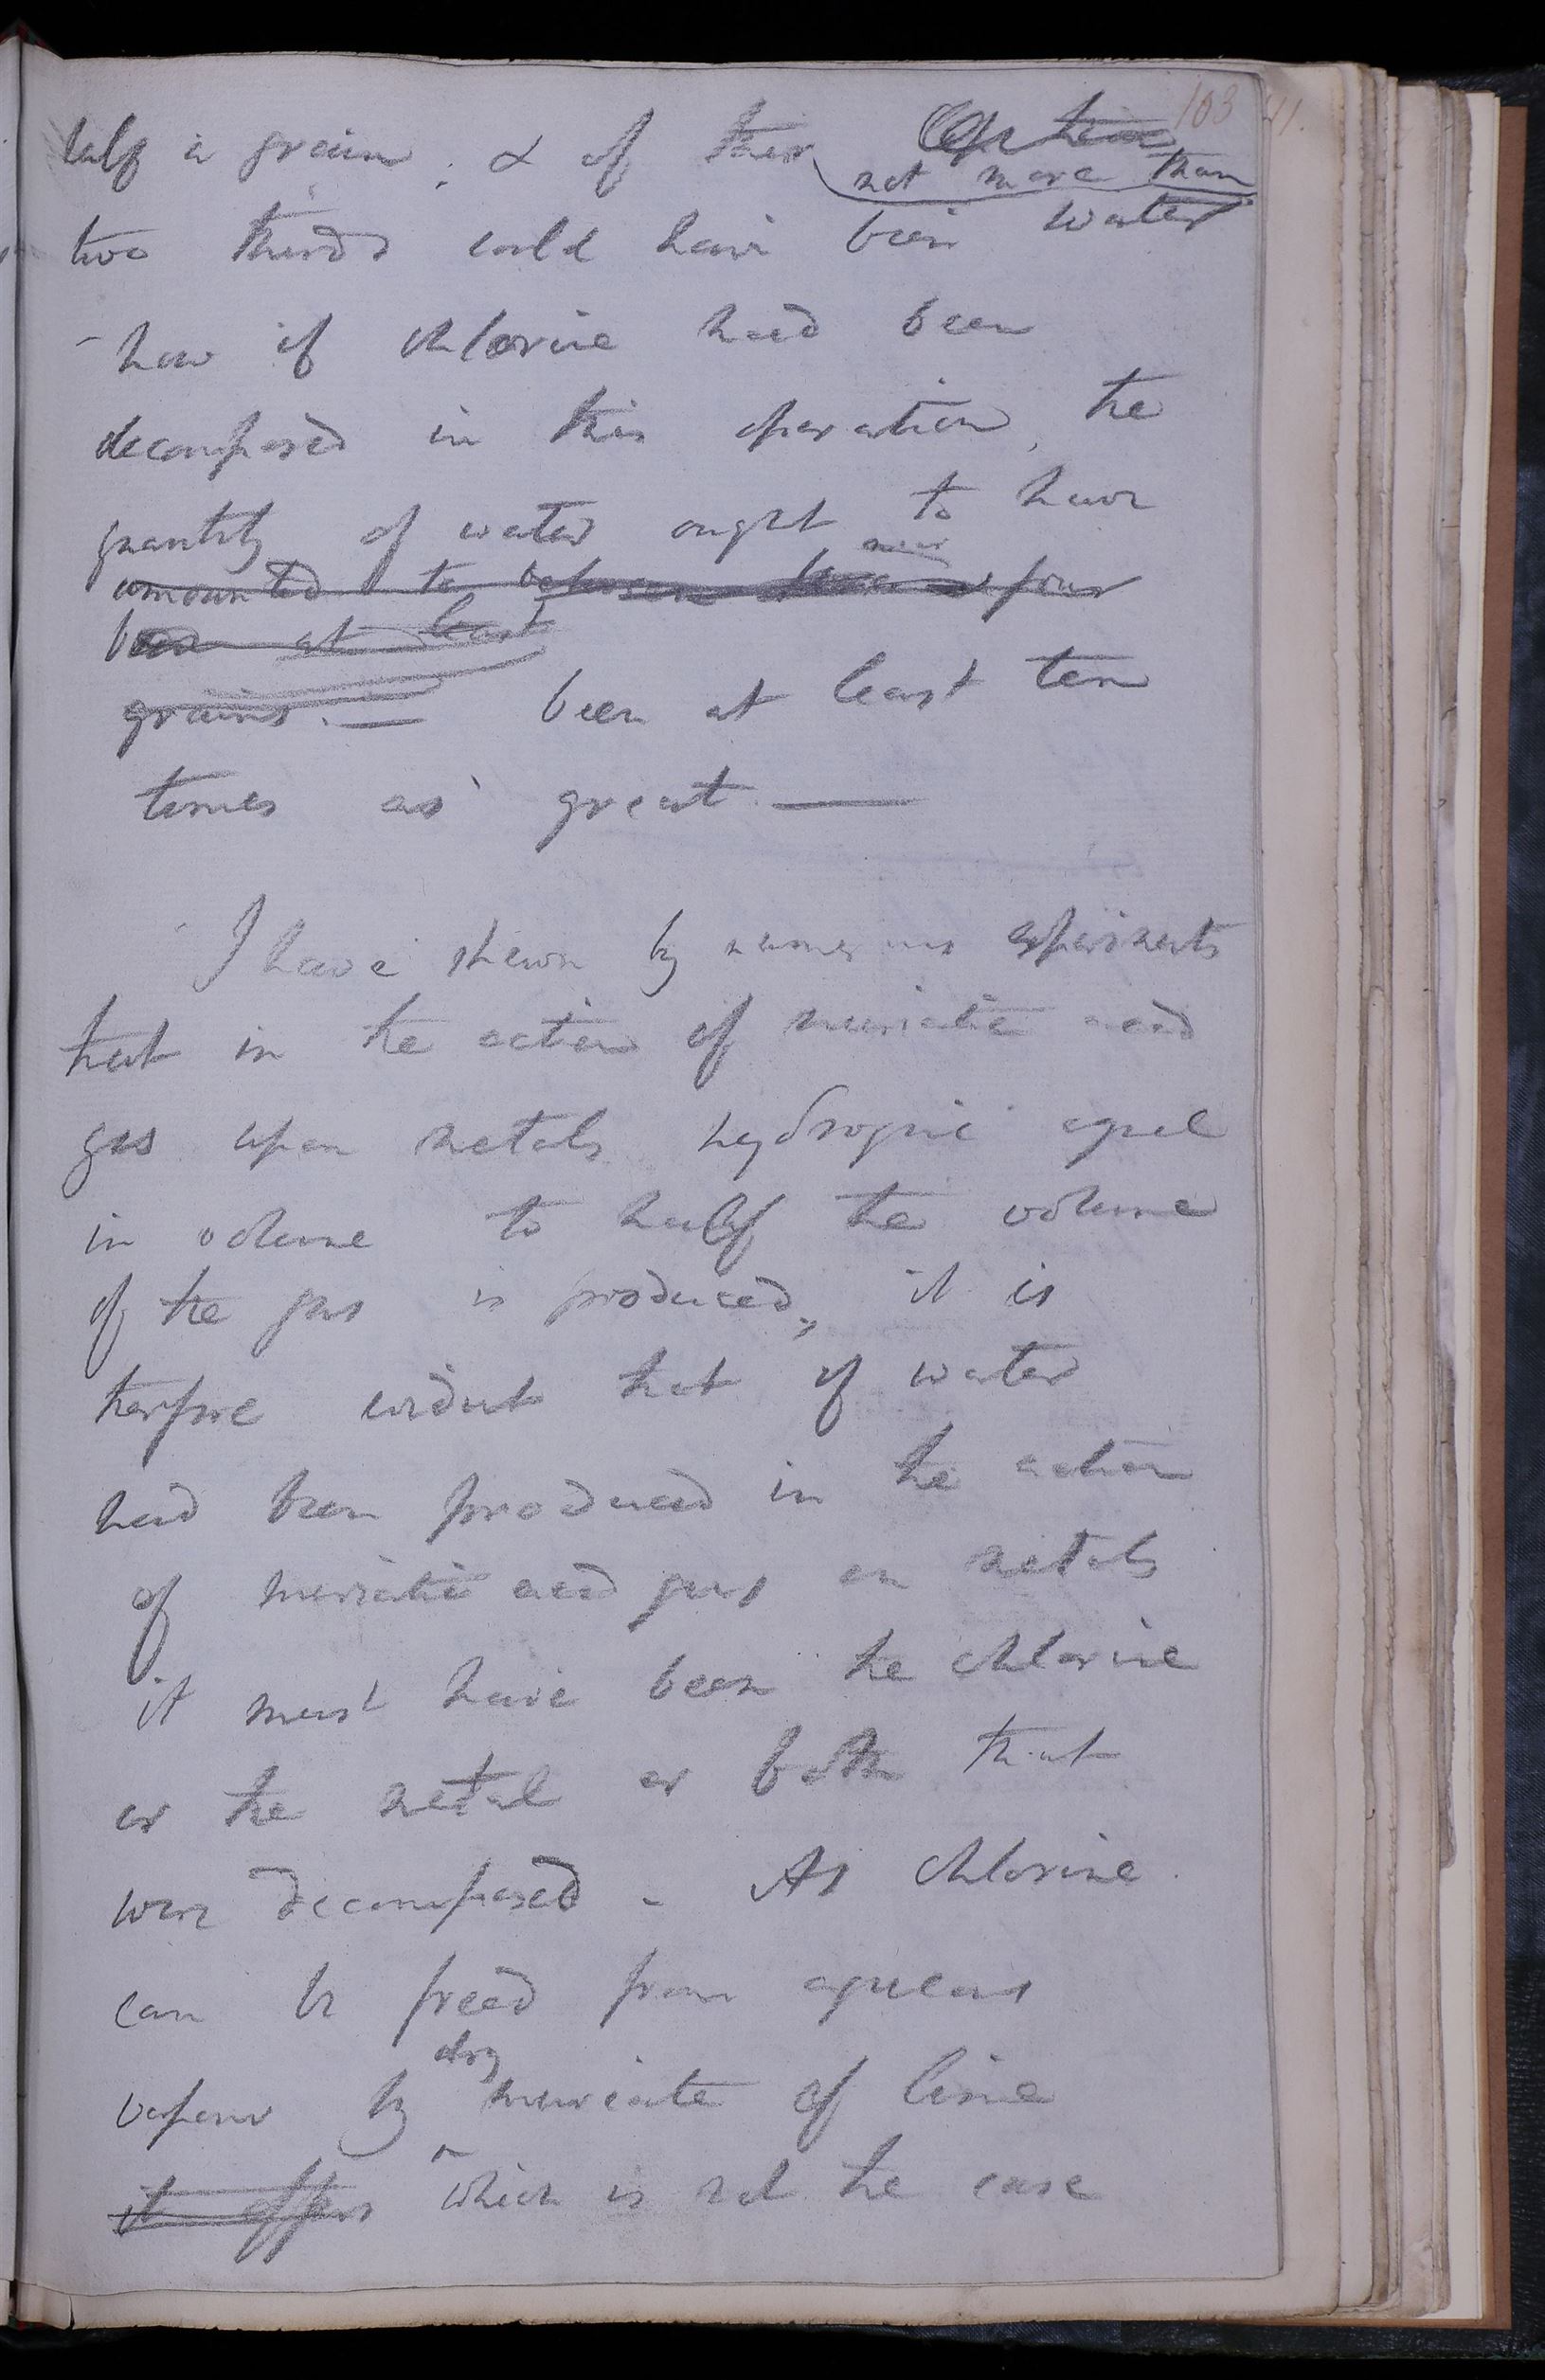 103 41.
half a grain; & of this
not more than
two thirds could have been water
- how if chlorine had been
decomposed in this operation, the
quantity of water ought to have
amounted to between four
been at least
grains. — been at least ten
times as great —
I have shewn by numerous experiments
that in the action of muriatic acid
gas upon metals hydrogene equal
in volume to half the volume
of the gas is produced, it is
therefore evident that if water
had been produced in the action
of muriatic acid gas on metals
it must have been the chlorine
or the metal or both that
were decomposed - As chlorine
can be freed from aqueous
dry
vapour by muriate of lime
^
it offers which is not the case